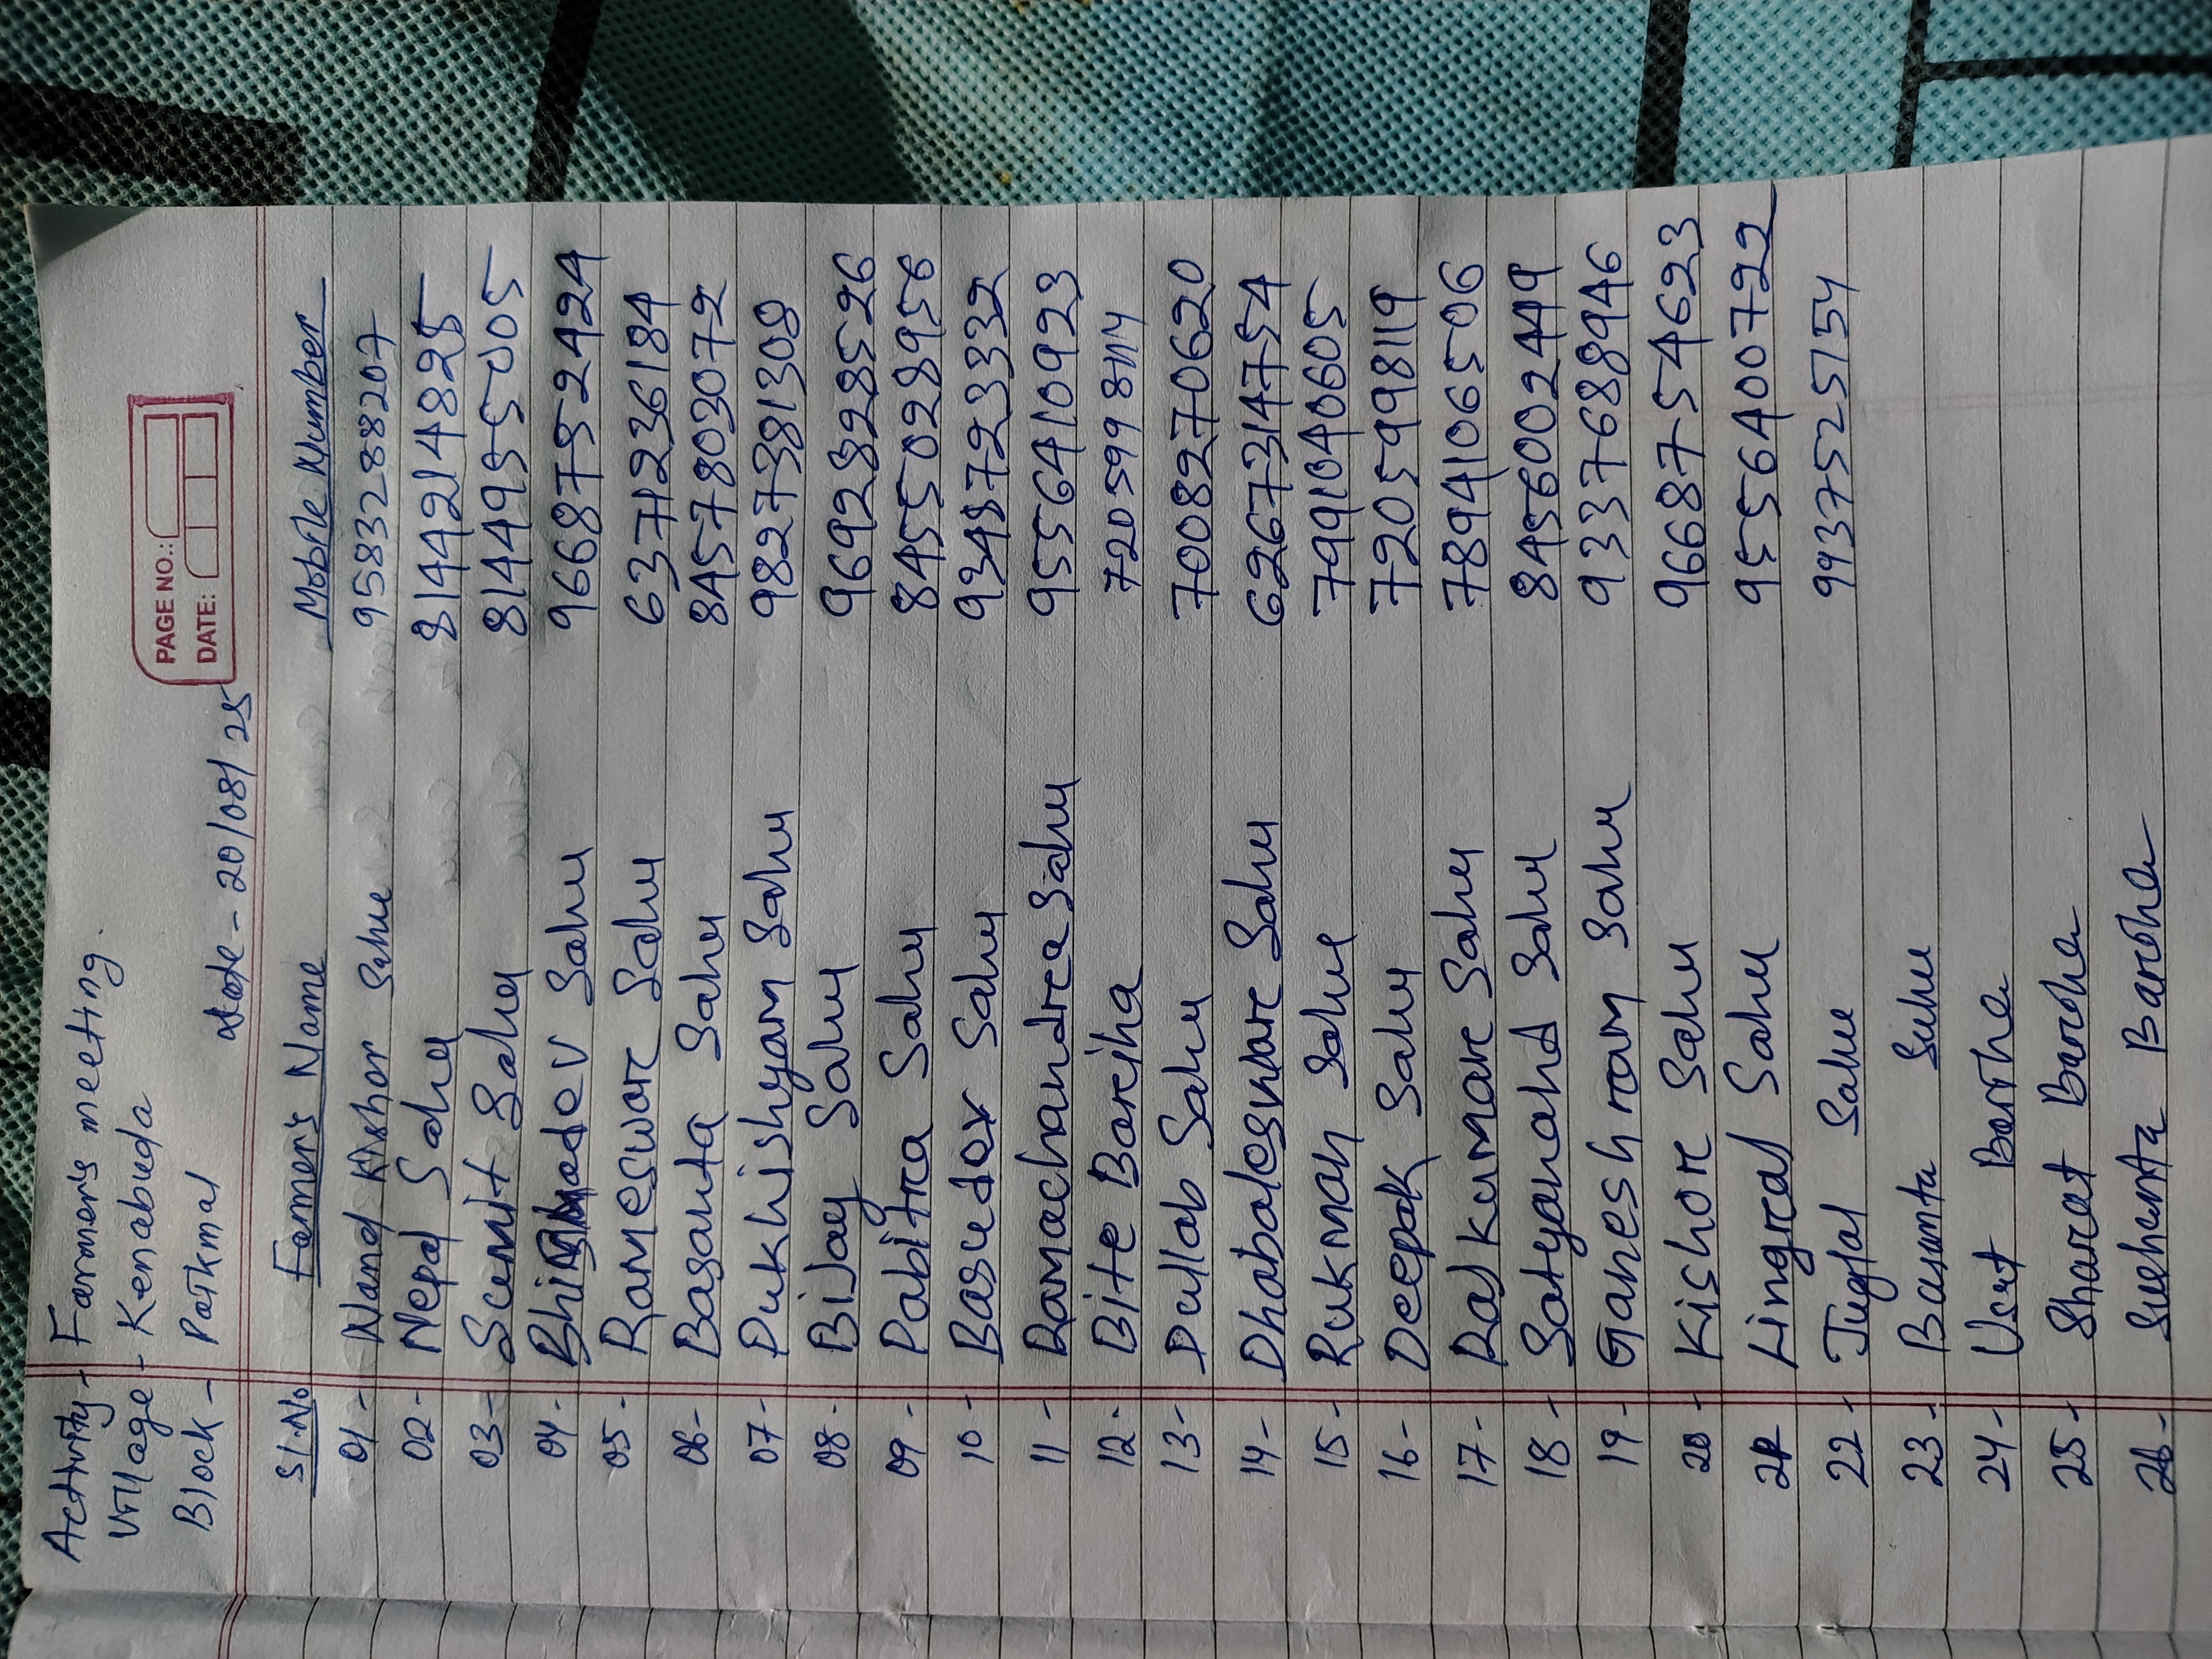 Activity - Farmer's meeting.
Village - Kenabuda
Block - Patkmal
PAGE NO.:
DATE:
date - 20/08/25
Sl.No Farmer's Name Mobile Number
01 - Nand Kishor Sahu 9583288207
02 - Nepal Sahu 8144214825
03 - Sumit Sahu 8144955005
04 - Sahu 9668752424
05 - Rameswar Sahu 6371236184
06 - Basanta Sahu 8457803072
07 - Dukhishyam Sahu 9827381308
08 - Bijay Sahu 9692828526
09 - Pabitra Sahu 8455028956
10 - Basudev Sahu 9348723332
11 - Ramachandra Sahu 9556410923
12 - Bite Bariha 7205998114
13 - Dullab Sahu 7008270620
14 - Dhabaleswar Sahu 6267314754
15 - Rukman Sahu 7991040605
16 - Deepak Sahu 7205998119
17 - Rajkumar Sahu 7894106506
18 - Satyanand Sahu 8456002449
19 - Ganeshram Sahu 9337688946
20 - Kishor Sahu 9668754623
21 Lingraj Sahu 9556400722
22 - Jugal Sahu 9937525754
23 - Basanta Sahu
24 - Bariha
25 - Sharat Bariha
26 - Bariha